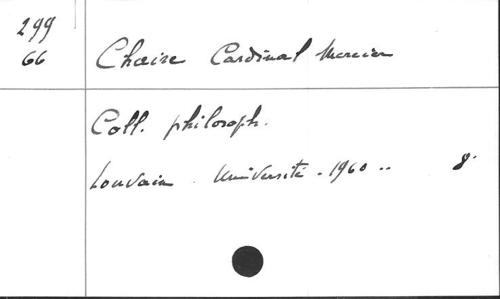 299
66
Chaire Cardinal Mercier
Coll. philosoph.
Louvain. Université. 1960 .. 8°